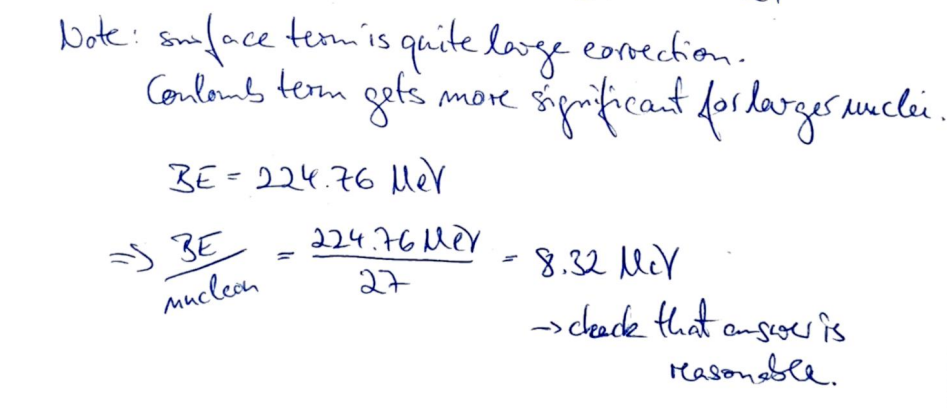 Note: surface term is quite large correction.
Coulomb term gets more significant for larger nuclei.
BE = 224.76 MeV
=> BE/nucleon = 224.76 MeV/27 = 8.32 MeV
-> check that answer is
reasonable.